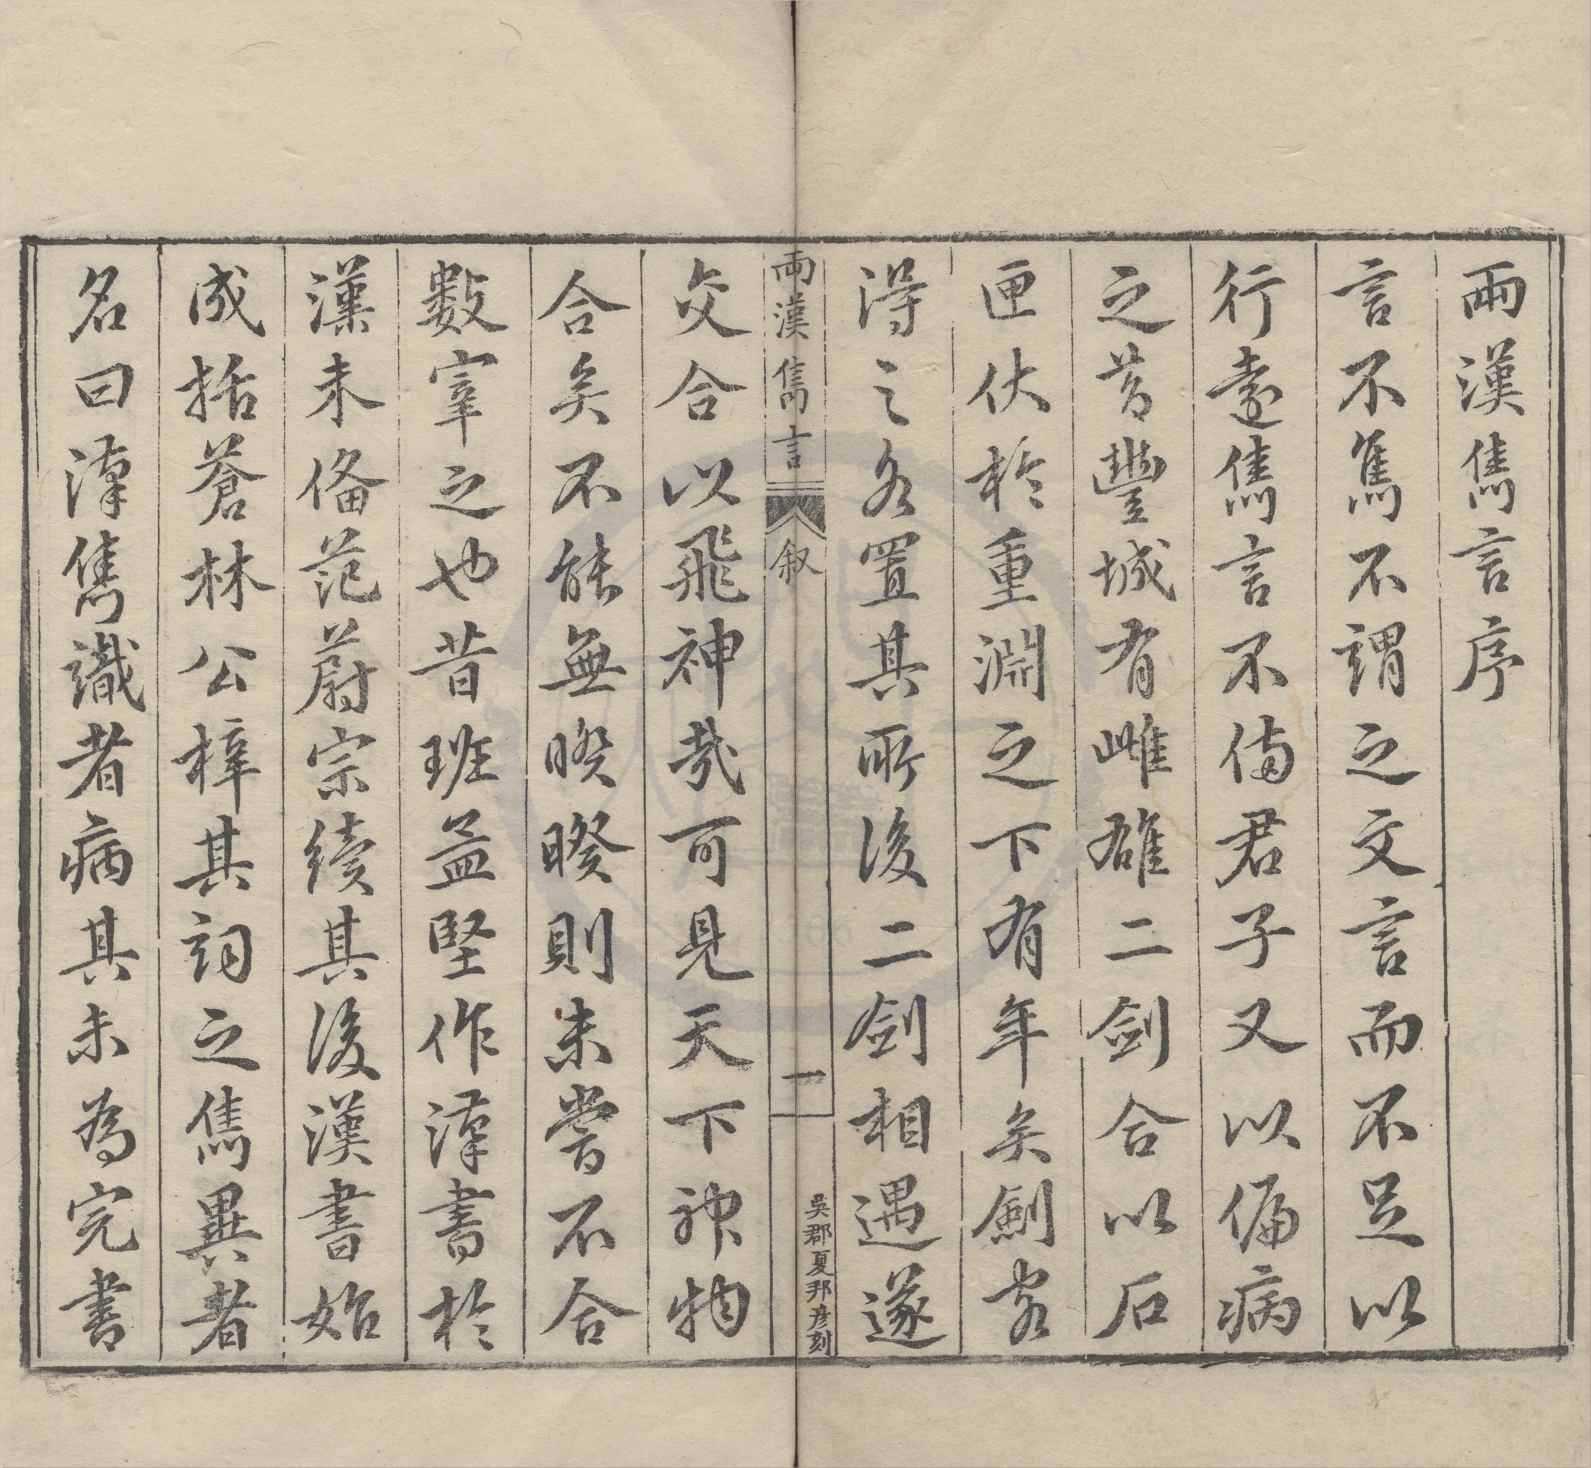 兩漢雋言序
言不雋不謂之文言而不足以
行遠雋言不備君子又以偏病
之昔豐城有雌雄二劍合以石
匣伏於重淵之下有年矣劍客
得之各置其所後二劍相遇遂
兩漢雋言 敘 一 吳郡夏邦彥刻
交合以飛神哉可見天下神物
合矣不能無暌暌則未嘗不合
數宰之也昔班孟堅作漢書於
漢未備范蔚宗續其後漢書始
成括蒼林公梓其詞之雋異者
名曰漢雋識者病其未為完書